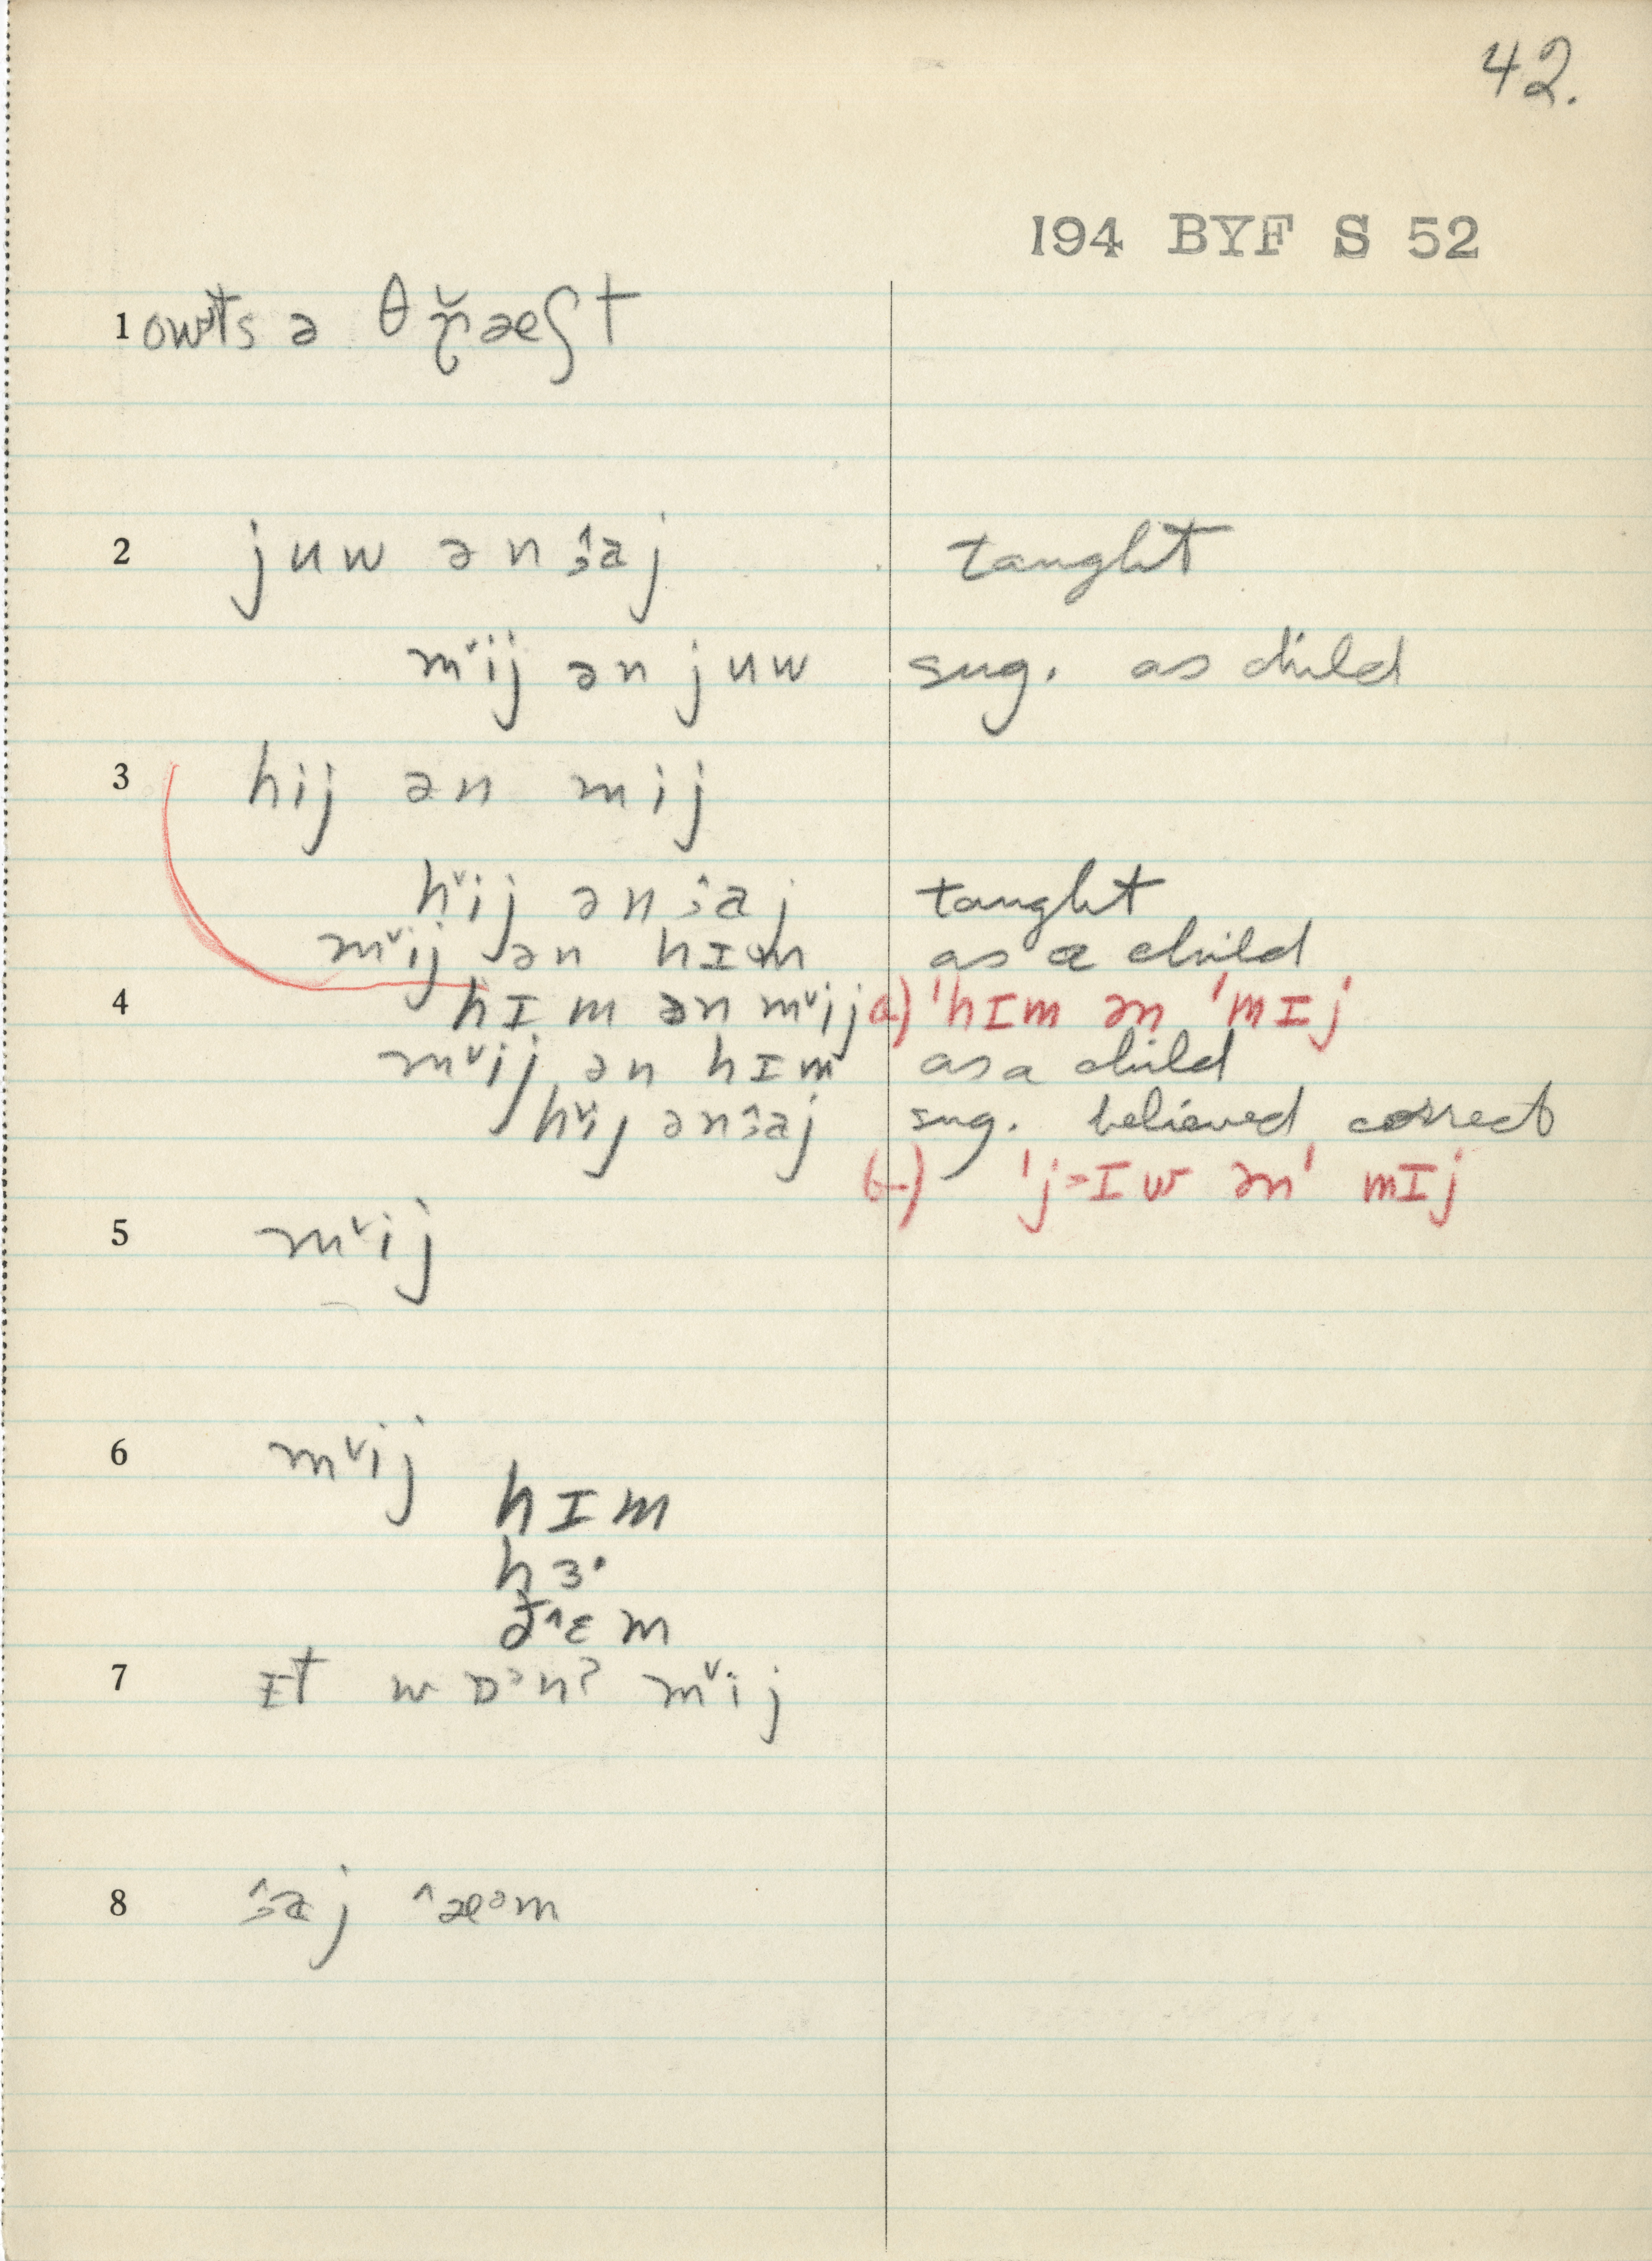 42.
194 BYF S 52
1 owts ə θr̆æʃt
2 juw ən ɜ̂aj taught
mᵛij ən juw sug. as child
3 hij ən mij
hᵛij ən ɜ̂aj taught
mᵛij ən hɪm as a child
4 hɪm ən mᵛij a) 'hɪm ən 'mɪj
mᵛij ən hɪm as a child
hᵛij ən ɜ̂aj sug. believed correct
b) 'j>ɪw ən' mɪj
5 mᵛij
6 mᵛij
hɪm
hɜ·
ð^ɛm
7 ɪt wɒᵊnʔ mᵛij
8 ɜ̂aj ^æᵊm